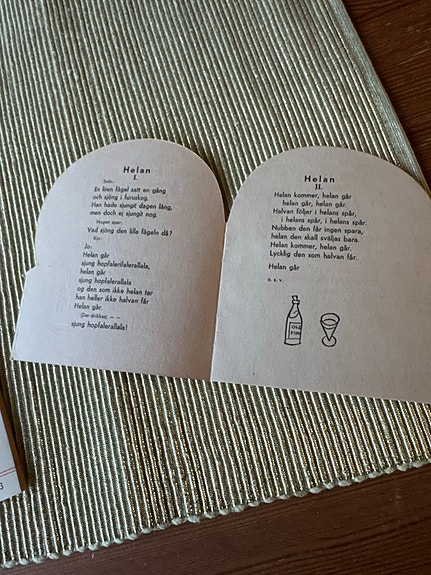 Helan
I.
Solo:
En liten fågel satt en gång
och sjöng i furuskog.
Han hade sjungit dagen lång,
men doch ej sjungit nog.
Nogen spør:
Vad sjöng den lilla fågeln då?
Kor:
Jo:
Helan går
sjung hopfalerifalerallala,
helan går
sjung hopfalerallala
og den som ikke helan tar
han heller ikke halvan får
Helan går.
(Der drikkes) — —
sjung hopfalerallala!
Helan
II.
Helan kommer, helan går
helan går, helan går.
Halvan följer i helans spår,
i helans spår, i helans spår.
Nubben den får ingen spara,
helan den skall sväljas bara.
Helan kommer, helan går,
Lycklig den som halvan får.
Helan går
o. s. v.
OLD
FINN
3